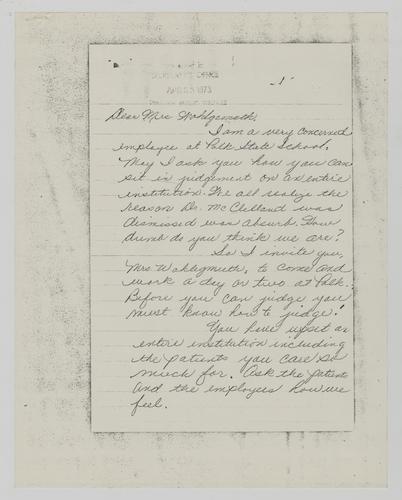 SECRETARY'S OFFICE
1973
1
Dear Mrs Wohlgemuth,
I am a very concerned
employee at Polk State School.
May I ask you how you can
sit in judgement on an entire
institution. We all realize the
reason Dr. McClelland was
dismissed was absurb. How
dumb do you think we are?
So I invite you,
Mrs Wohlegmuth, to come and
work a day or two at Polk.
Before you can judge you
must know how to judge!
You have upset an
entire institution including
the patients you care so
much for. Ask the patients
and the employees how we
feel.